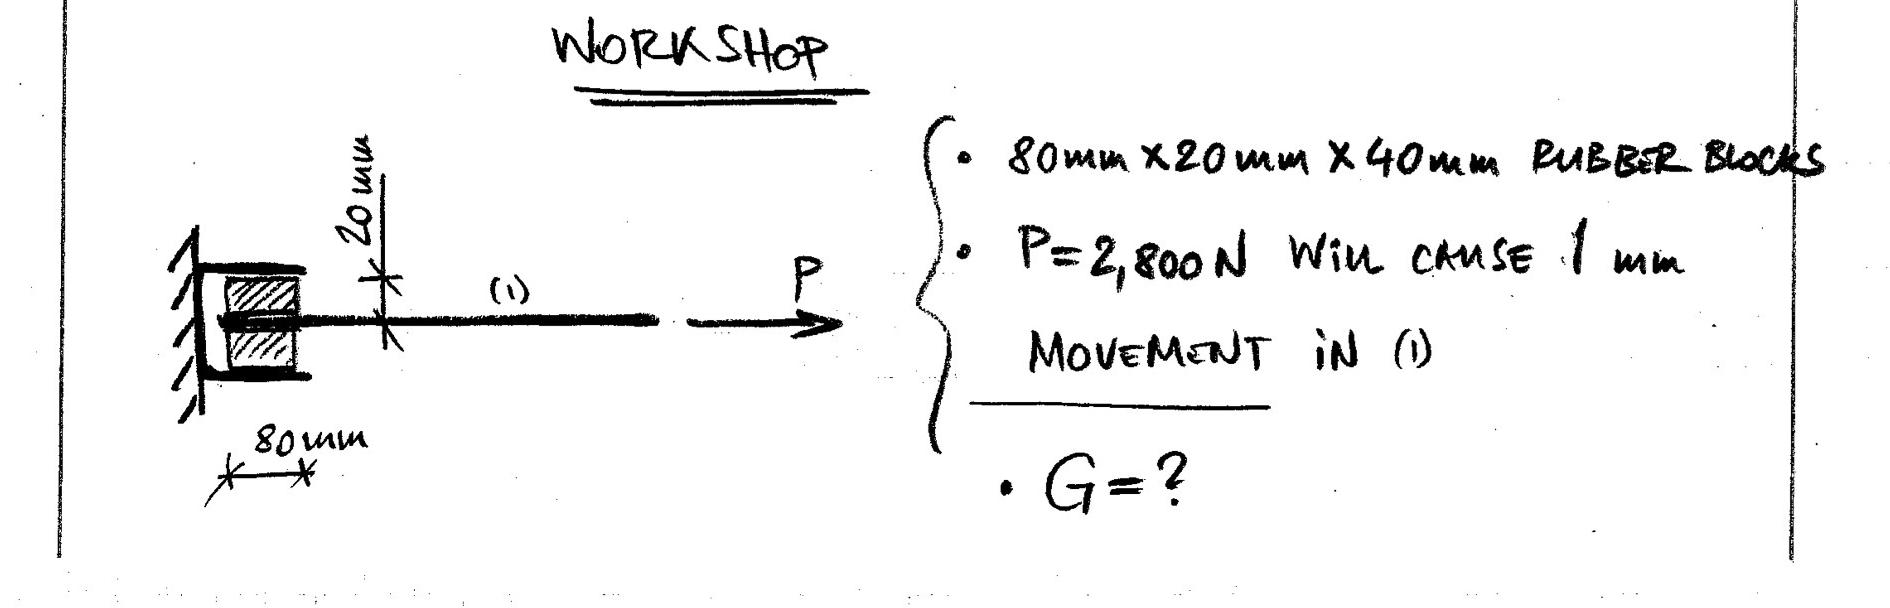 WORKSHOP
20mm
(1)
P
80mm
• 80mm x 20mm x 40mm RUBBER BLOCKS
• P=2,800N WILL CAUSE 1 mm
MOVEMENT IN (1)
• G=?